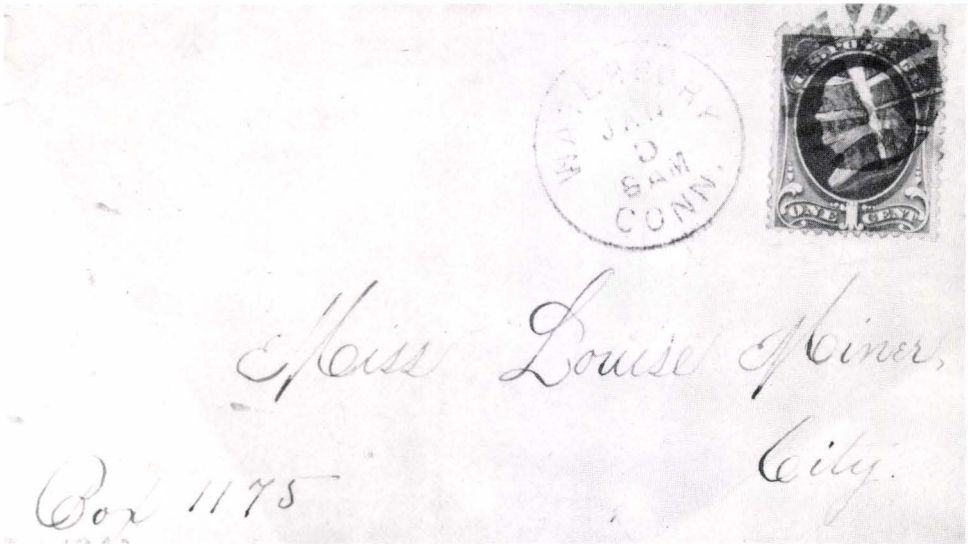 WATERBURY
JAN
8 AM
CONN.
U.S. POSTAGE
ONE 1 CENT
Miss Louise Miner,
City.
Box 1175